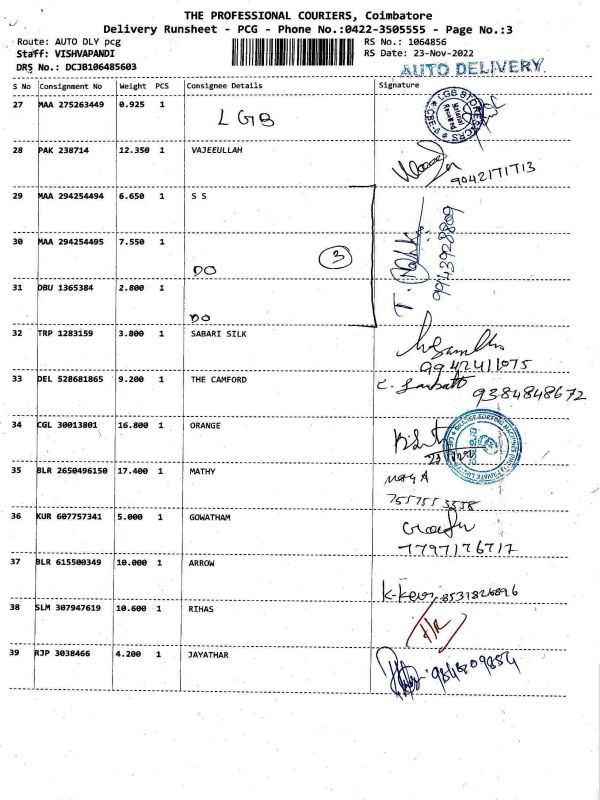 THE PROFESSIONAL COURIERS, Coimbatore
Delivery Runsheet - PCG - Phone No.:0422-3505555 - Page No.:3
Route: AUTO DLY pcg RS No.: 1064856
Staff: VISHVAPANDI RS Date: 23-Nov-2022
DRS No.: DCJB106485603 AUTO DELIVERY
S No Consignment No Weight PCS Consignee Details Signature
27 MAA 275263449 0.925 1 LGB
28 PAK 238714 12.350 1 VAJEEULLAH
9042171713
29 MAA 294254494 6.650 1 S S
30 MAA 294254495 7.550 1
DO 3
9943928809
31 DBU 1365384 2.800 1
DO
32 TRP 1283159 3.800 1 SABARI SILK
9942411075
33 DEL 528681865 9.200 1 THE CAMFORD
9384848672
34 CGL 30013801 16.800 1 ORANGE
35 BLR 2650496150 17.400 1 MATHY
36 KUR 607757341 5.000 1 GOWATHAM
7797176717
37 BLR 615500349 10.000 1 ARROW
8531826896
38 SLM 307947619 10.600 1 RIHAS
39 RJP 3038466 4.200 1 JAYATHAR